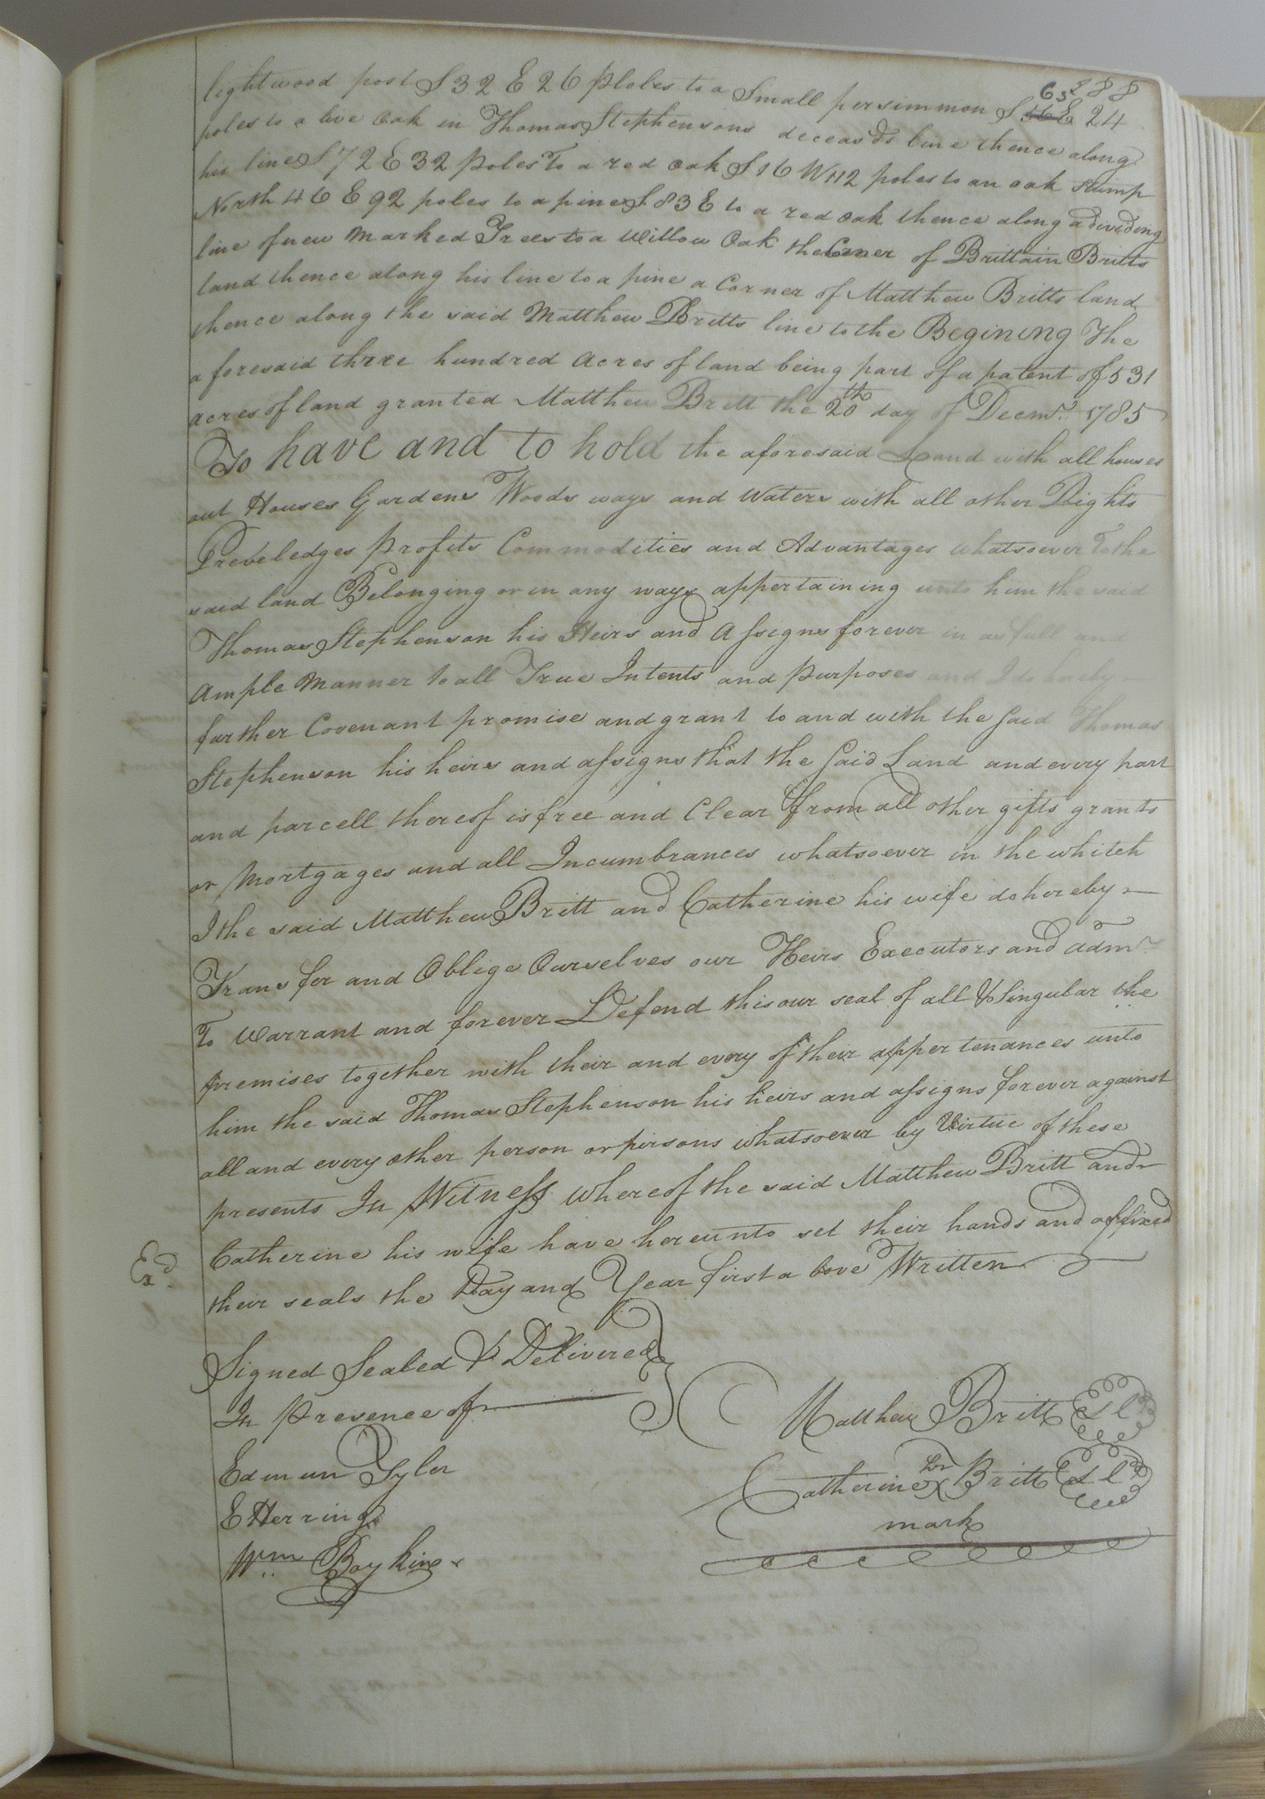 288
lightwood post S 32 E 26 Ploles to a Small persimmon S 65 E 24
poles to a live Oak in Thomas Stephensons deceasds line thence along
his line S 72 E 32 poles To a red oak S 16 W 112 poles to an oak stump
North 46 E 92 poles to a pine S 83 E to a red oak thence along a dividing
line of new Marked Trees to a Willow Oak the Corner of Brittain Britts
land thence along his line to a pine a Corner of Matthew Britts land
thence along the said Matthew Britts line to the Begining The
aforesaid three hundred acres of land being part of a patent of 531
acres of land granted Matthew Britt the 20th day of Decemr. 1785
To have and to hold the aforesaid Land with all houses
out Houses Gardens Woods ways and Waters with all other Rights
Preveledges Profits Commodities and Advantages whatsoever To the
said land Belonging or in any ways appertaining unto him the said
Thomas Stephenson his Heirs and Assigns forever in as full an
Ample Manner to all True Intents and purposes and I do hereby
further Covenant promise and grant to and with the said Thomas
Stephenson his heirs and assigns that the said Land and every part
and parcell thereof is free and Clear from all other gifts grants
or Mortgages and all Incumbrances whatsoever in the whitch
I the said Matthew Britt and Catherine his wife do hereby
Transfer and Oblige Ourselves our Heirs Executors and admrs
To Warrant and forever Defend this our seal of all & Singular the
premises together with their and every of their appertenances unto
him the said Thomas Stephenson his heirs and assigns forever against
all and every other person or persons whatsoever by Virtue of these
presents In Witness whereof the said Matthew Britt and
Catherine his wife have hereunto set their hands and affixed
Exd.
their seals the Day and Year first above Written
Signed Sealed & Delivered
In Presence of
Matthew Britt Sl
Edmun Tyler
Catherine her X Britt Sl
mark
E Herring
Wm Boykin